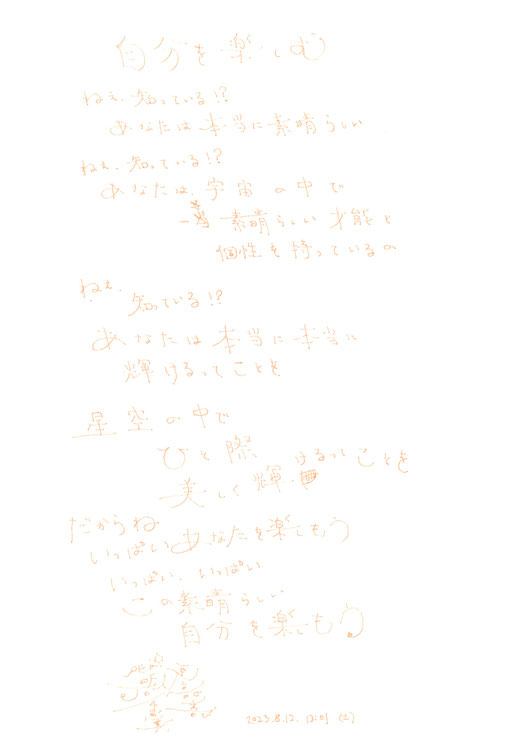 自分を楽しむ
ねぇ、知っている!?
あなたは本当に素晴らしい
ねぇ、知っている!?
あなたは、宇宙の中で
一番素晴らしい才能と
個性を持っているの
ねぇ、
知っている!?
あなたは本当に本当に
輝けるってことを
星空の中で
ひと際
美しく輝けるってことを
だからね
いっぱいあなたを楽しもう
いっぱい、いっぱい
この素晴らしい
自分を楽しもう
2023.8.12. 12:01 (土)